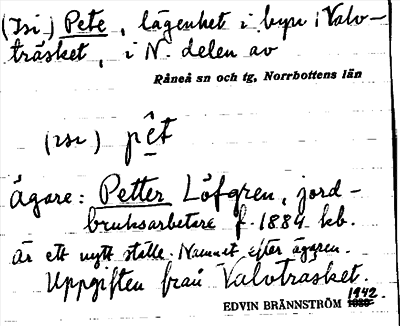 (Isi) Pete, lägenhet i byn i Valv-
träsket, i N. delen av
Råneå sn och tg, Norrbottens län
(isi) pêt
ägare: Petter Löfgren, jord-
bruksarbetare f. 1884 kb.
är ett nytt ställe. Namnet efter ägaren.
Uppgiften från Valvträsket.
1942.
EDVIN BRÄNNSTRÖM